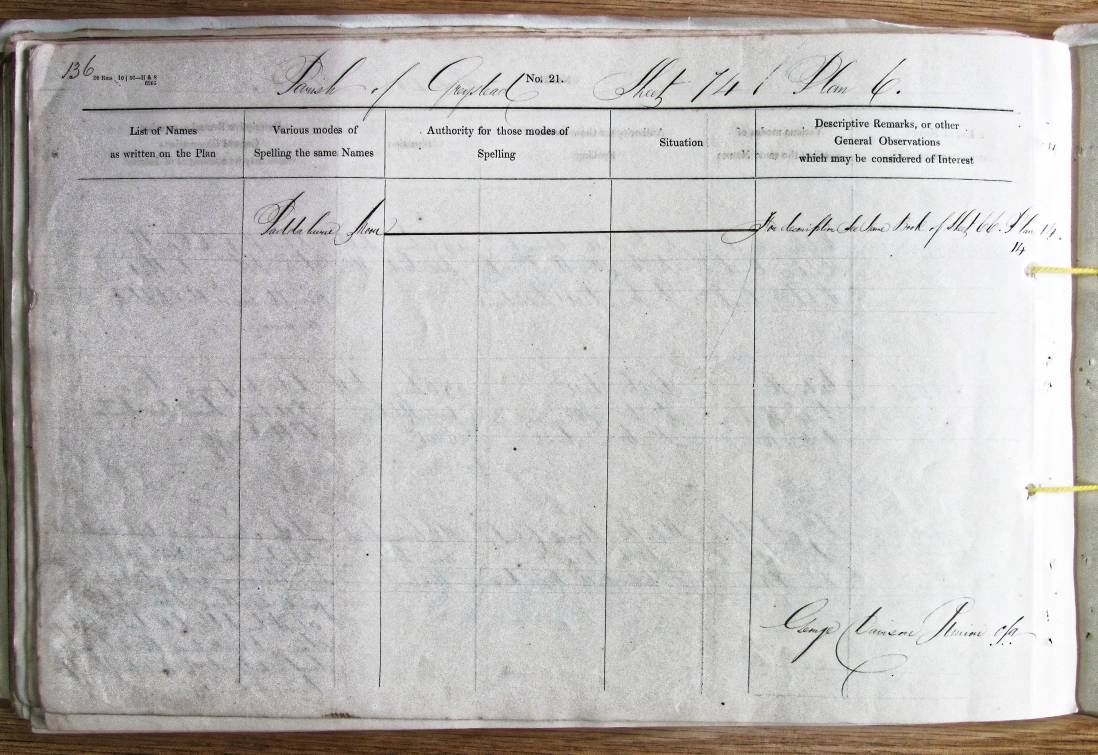 136
No. 21.
Parish of Greystead Sheet 74 Plan 6.
List of Names
as written on the Plan
Various modes of
Spelling the same Names
Authority for those modes of
Spelling
Situation
Descriptive Remarks, or other
General Observations
which may be considered of Interest
Moor
For description See Name Book of Sheet 66. Plan 14.
14
George